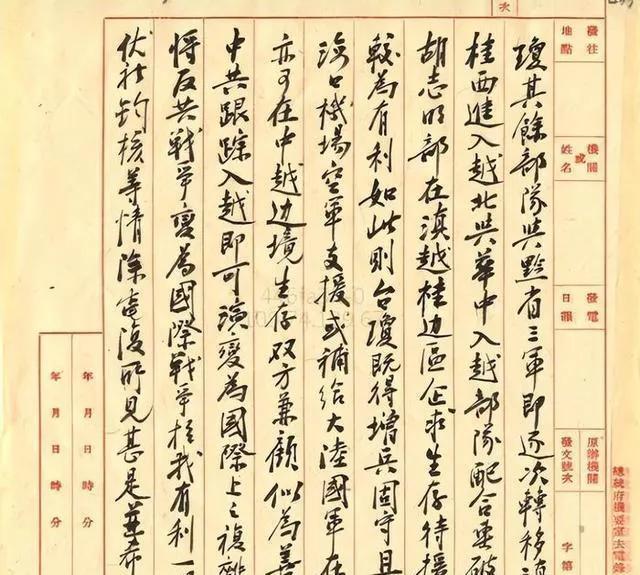 瓊其餘部隊與黔省三軍即逐次轉移
桂西進入越北與華中入越部隊配合要破
胡志明部在滇越桂边區企求生存待援
較為有利如此則台瓊既得增兵固守且
海口機場空軍支援或補給大陸國軍在
亦可在中越边境生存双方兼顧似為善
中共跟踪入越即可演變為國際上之複雜
將反共戰爭變為國際戰爭於我有利一
伏祈鈞核等情除電復所見甚是並希
發往地點
機關或姓名
發電日韻
原辦機關
發文號次
字第
總統府機要室去電錄
年月日時分
年月日時分
次